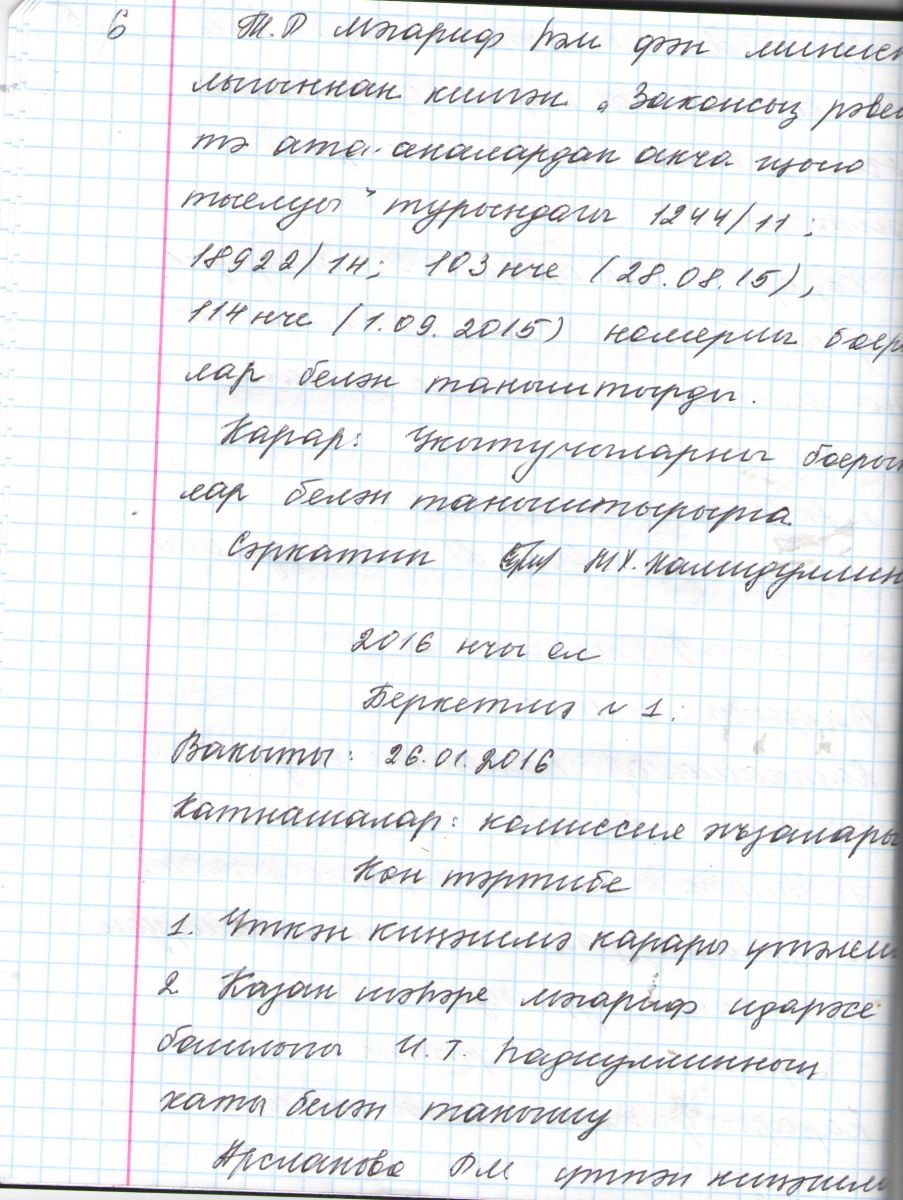 6
Т.Р мәгариф һәм фән минист
лыгыннан килгән „Законсыз рәвеш
тә ата-аналардан акча җыю
тыелуы" турындагы 1244/11;
18922/14; 103 нче (28.08.15),
114 нче (1.09.2015) номерлы боеры
лар белән таныштырды.
Карар: Укытучыларны боерык
лар белән таныштырырга
Сәркатип М.Х. Хамидуллин
2016 нчы ел
Беркетмә №1.
Вакыты: 26.01.2016
Катнашалар: комиссия әгъзалары
Көн тәртибе
1. Үткән киңәшмә карары үтәлеш
2 Казан шәһәре мәгариф идарәсе
башлыгы И.Т. Һадиуллинның
хаты белән танышу
Арсланова РМ үткән киңәшмә